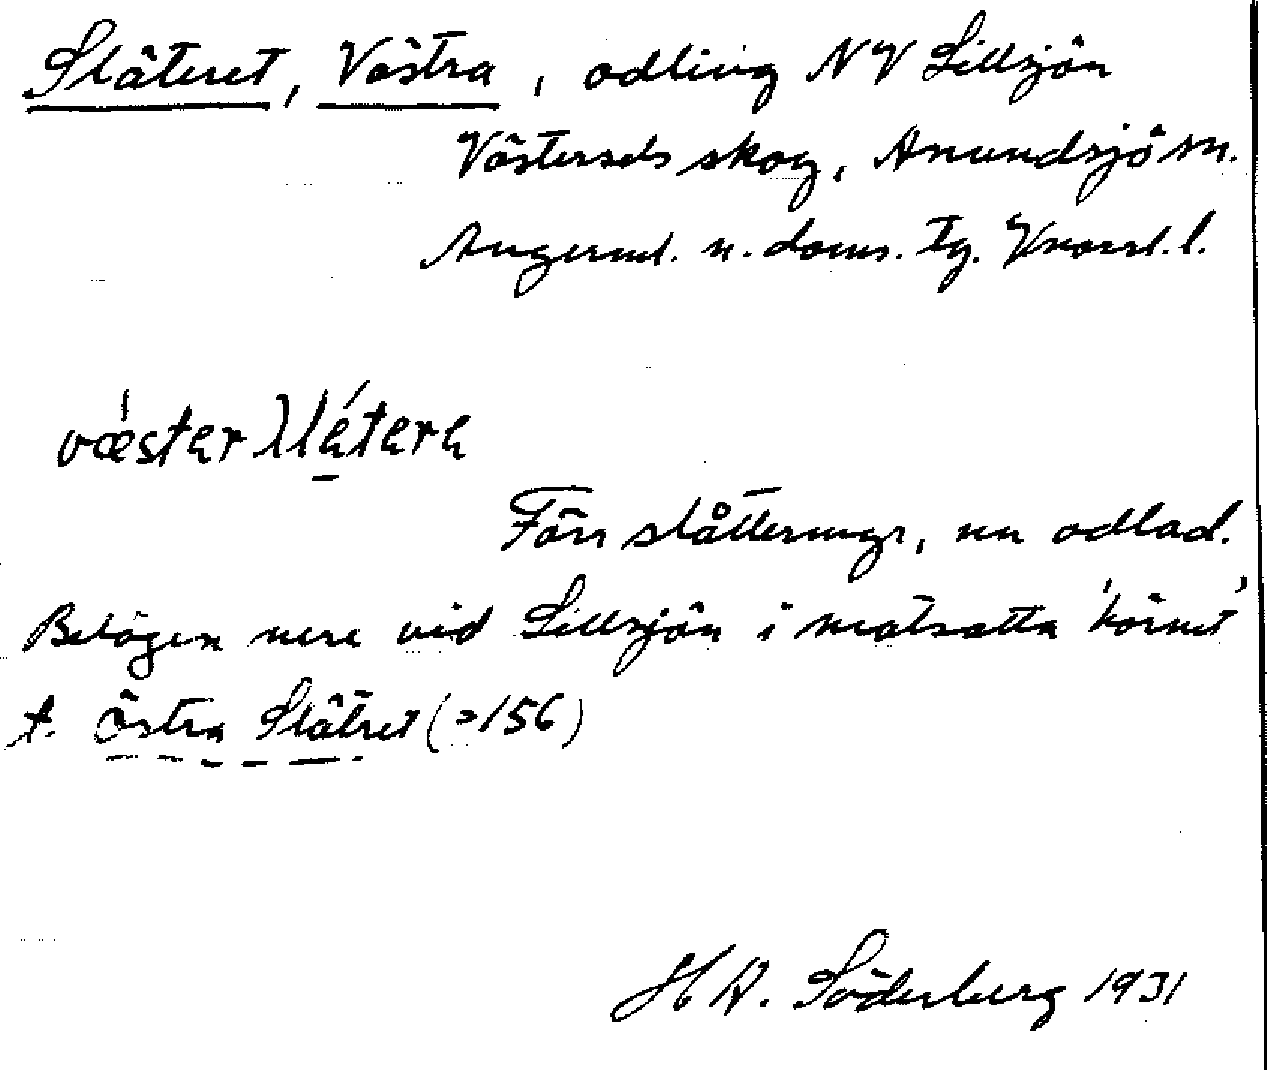 Slåteret, Västra, odling NV Lillsjön
Västersels skog, Anundsjö sn.
Ångerml. n. doms. tg. Vnorrl. l.
væ̍star ʃlátera
Förr slåttermyr, nu odlad.
Belägen nere vid Lillsjön i motsatta 'hörnet'
t. Östra Slåtret (=156)
H A. Söderberg 1931